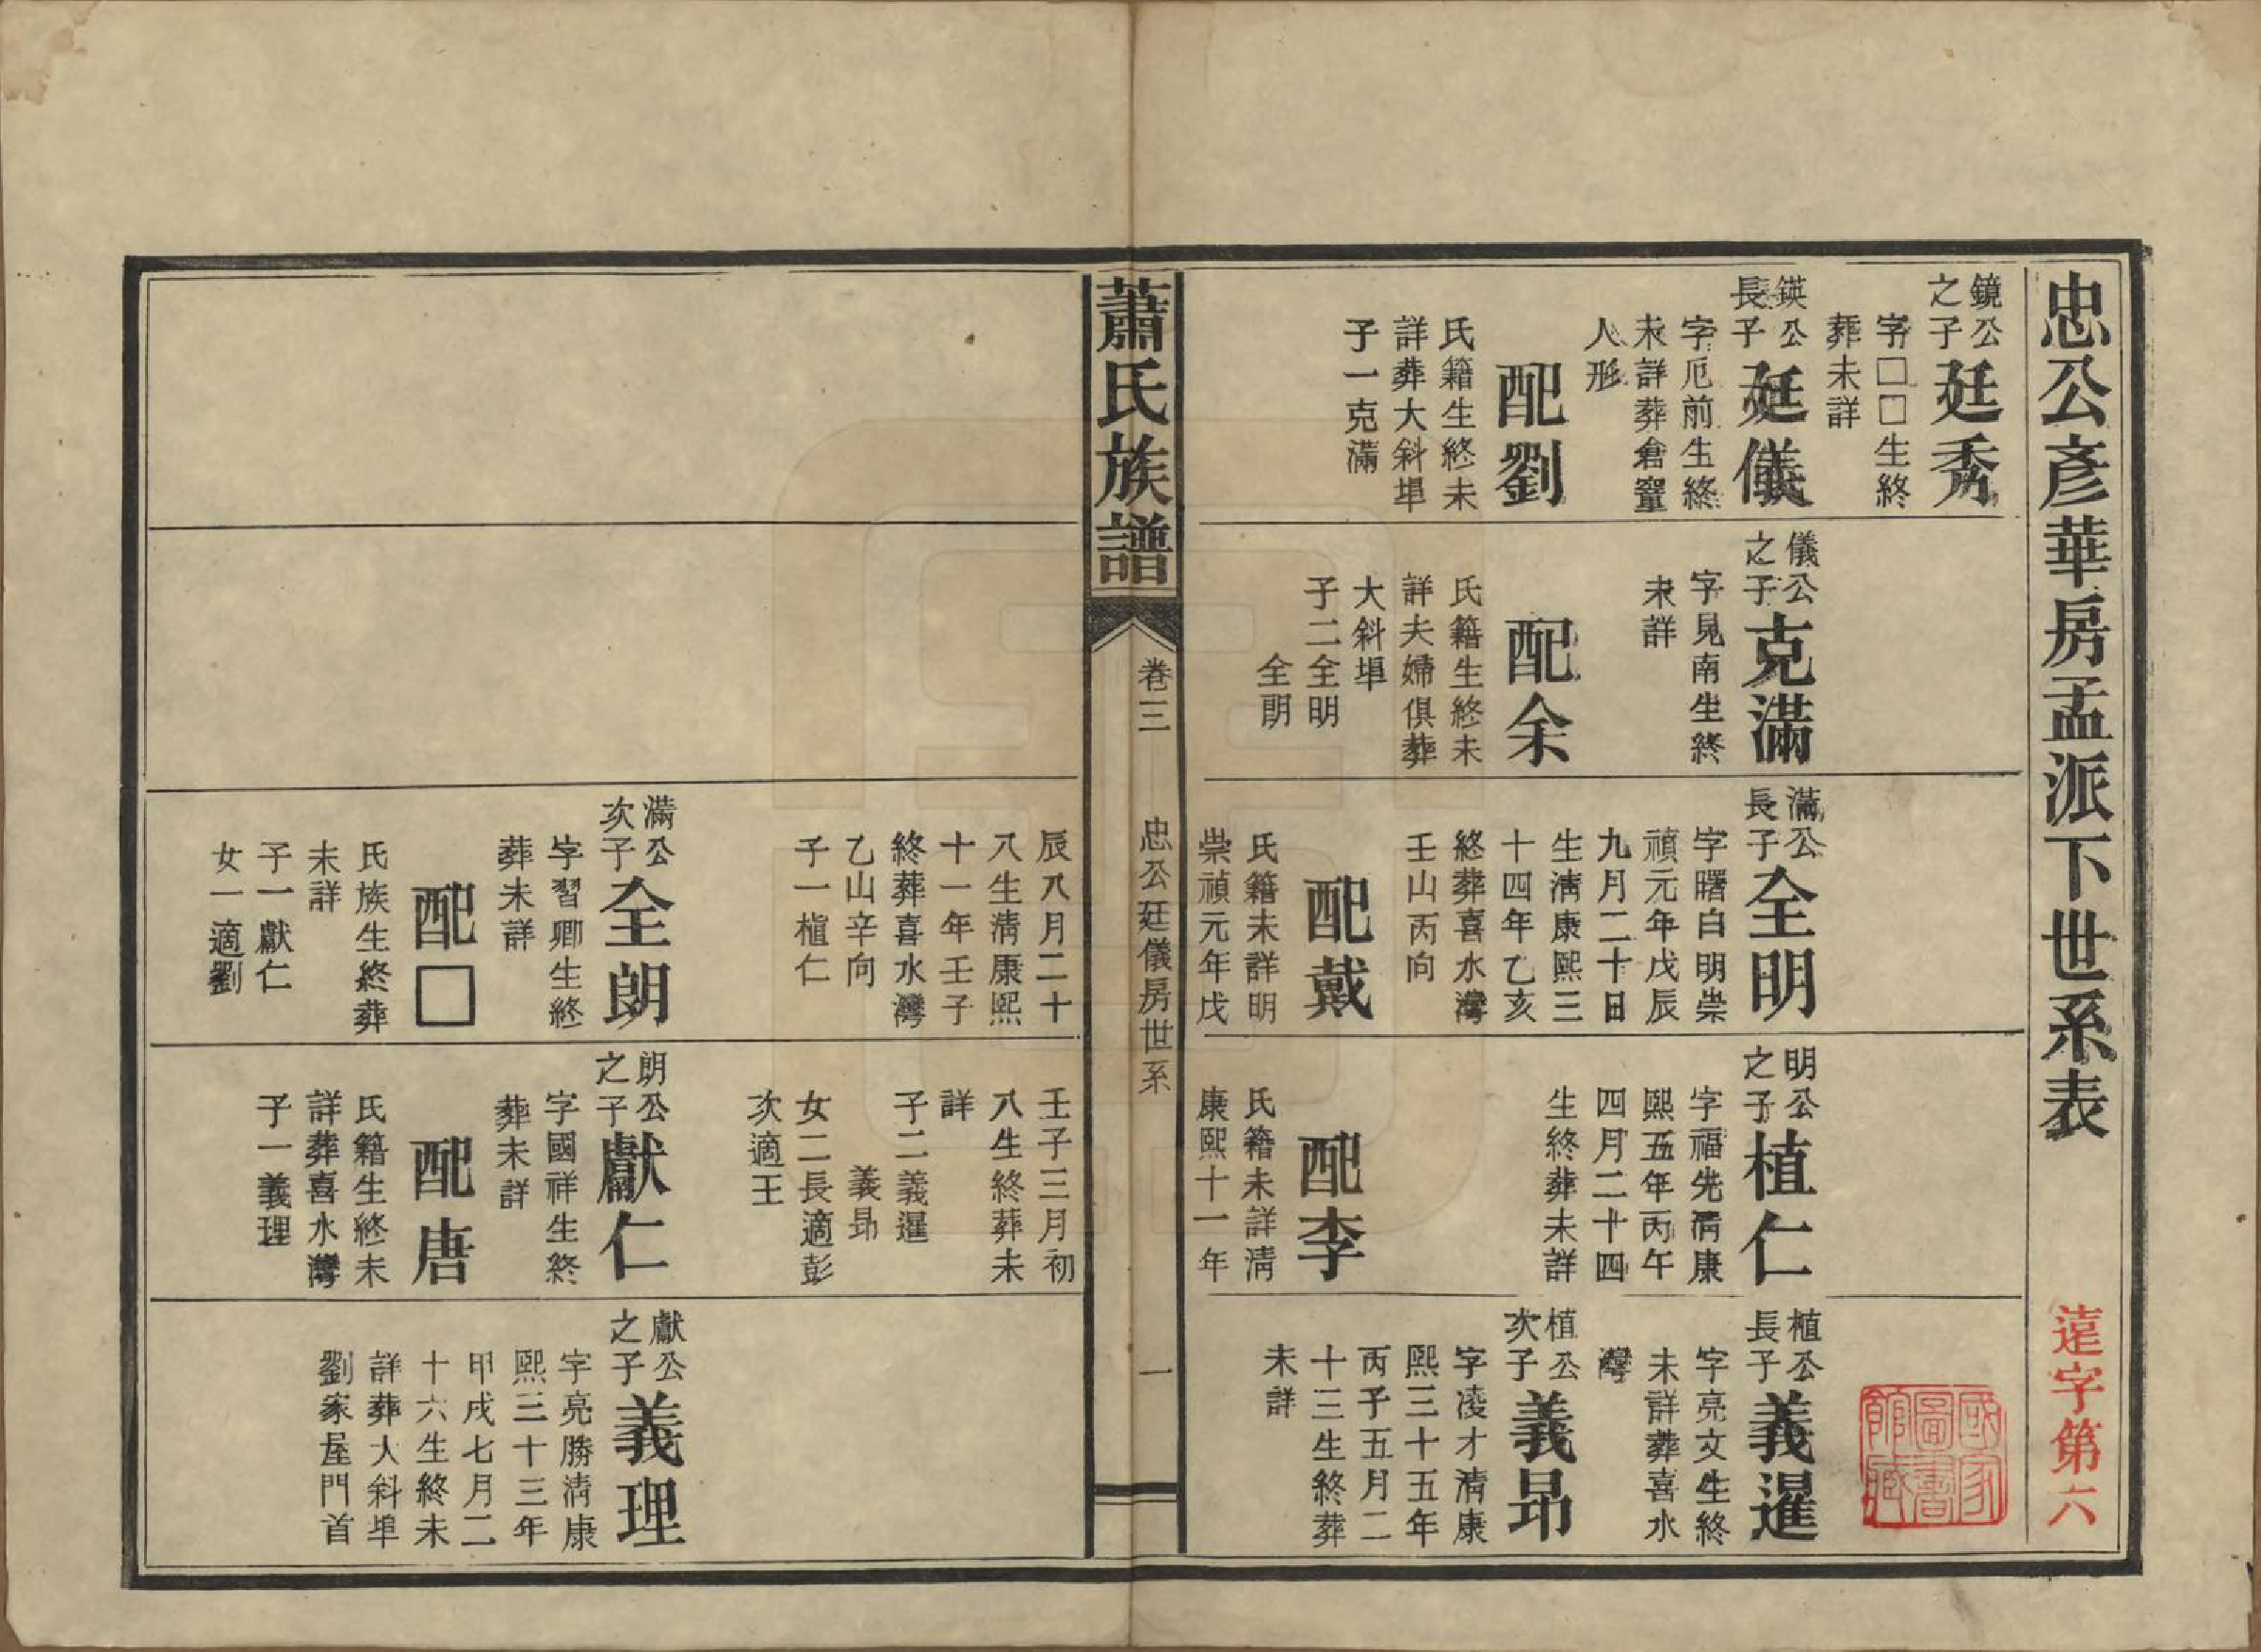 忠公彥華房孟派下世系表
遠字第六
國家圖書館藏
鏡公之子
廷秀
字□□生終
葬未詳
鍈公長子
廷儀
字厄前生終
未詳葬倉窰
人形
配劉
氏籍生終未
詳葬大斜埠
子一克滿
儀公之子
克滿
字見南生終
未詳
配余
氏籍生終未
詳夫婦俱葬
大斜埠
子二全明
全朗
滿公長子
全明
字曙白明崇
禎元年戊辰
九月二十日
生淸康熙三
十四年乙亥
終葬喜水灣
壬山丙向
配戴
氏籍未詳明
崇禎元年戊
明公之子
植仁
字福先淸康
熙五年丙午
四月二十四
生終葬未詳
配李
氏籍未詳淸
康熙十一年
植公長子
義暹
字亮文生終
未詳葬喜水
灣
植公次子
義昂
字凌才淸康
熙三十五年
丙子五月二
十三生終葬
未詳
蕭氏族譜
卷三
忠公廷儀房世系
一
辰八月二十
八生淸康熙
十一年壬子
終葬喜水灣
乙山辛向
子一植仁
滿公次子
全朗
字習卿生終
葬未詳
配□
氏族生終葬
未詳
子一獻仁
女一適劉
壬子三月初
八生終葬未
詳
子二義暹
義昂
女二長適彭
次適王
朗公之子
獻仁
字國祥生終
葬未詳
配唐
氏籍生終未
詳葬喜水灣
子一義理
獻公之子
義理
字亮勝淸康
熙三十三年
甲戌七月二
十六生終未
詳葬大斜埠
劉家屋門首